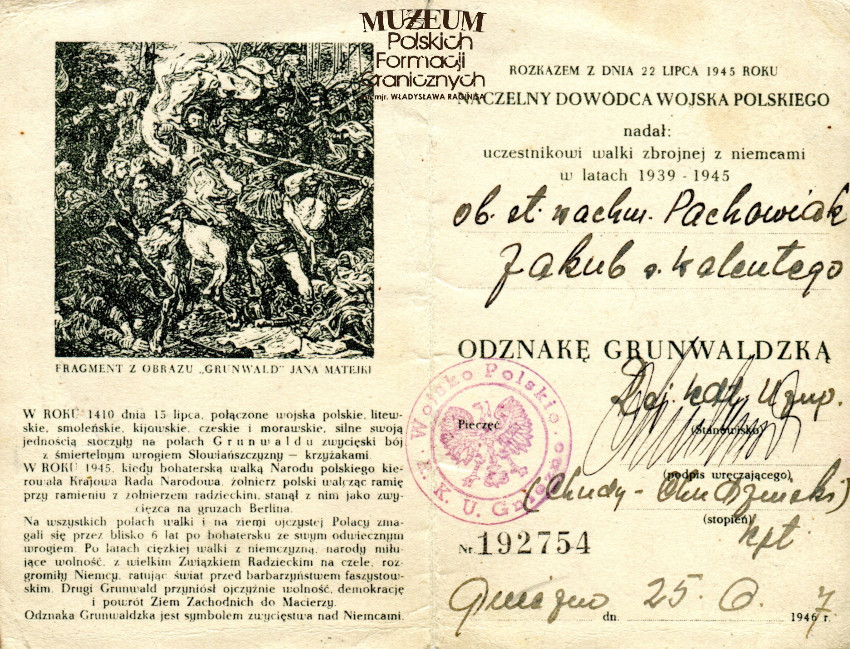 MUZEUM
Polskich
Formacji
Granicznych
im. mjr. WŁADYSŁAWA RAGINISA
FRAGMENT Z OBRAZU „GRUNWALD" JANA MATEJKI
W ROKU 1410 dnia 15 lipca, połączone wojska polskie, litew-
skie, smoleńskie, kijowskie, czeskie i morawskie, silne swoją
jednością stoczyły na polach Grunwaldu zwycięski bój
z śmiertelnym wrogiem Słowiańszczyzny — krzyżakami.
W ROKU 1945, kiedy bohaterską walką Narodu polskiego kie-
rowała Krajowa Rada Narodowa, żołnierz polski walcząc ramię
przy ramieniu z żołnierzem radzieckim, stanął z nim jako zwy-
cięzca na gruzach Berlina.
Na wszystkich polach walki i na ziemi ojczystej Polacy zma-
gali się przez blisko 6 lat po bohatersku ze swym odwiecznym
wrogiem. Po latach ciężkiej walki z niemczyzną, narody miłu-
jące wolność, z wielkim Związkiem Radzieckim na czele, roz-
gromiły Niemcy, ratując świat przed barbarzyństwem faszystow-
skim. Drugi Grunwald przyniósł ojczyźnie wolność, demokrację
i powrót Ziem Zachodnich do Macierzy.
Odznaka Grunwaldzka jest symbolem zwycięstwa nad Niemcami.
ROZKAZEM Z DNIA 22 LIPCA 1945 ROKU
NACZELNY DOWÓDCA WOJSKA POLSKIEGO
nadał:
uczestnikowi walki zbrojnej z niemcami
w latach 1939 - 1945
ob. st. wachm. Pachowiak
Jakub s. Walentego
ODZNAKĘ GRUNWALDZKĄ
Wojsko Polskie
R. K. U. Gniezno
Pieczęć
(Stanowisko)
(podpis wręczającego)
(stopień)
kpt.
Nr. 192754
Gniezno dn. 25. 6. 1946 7 r.